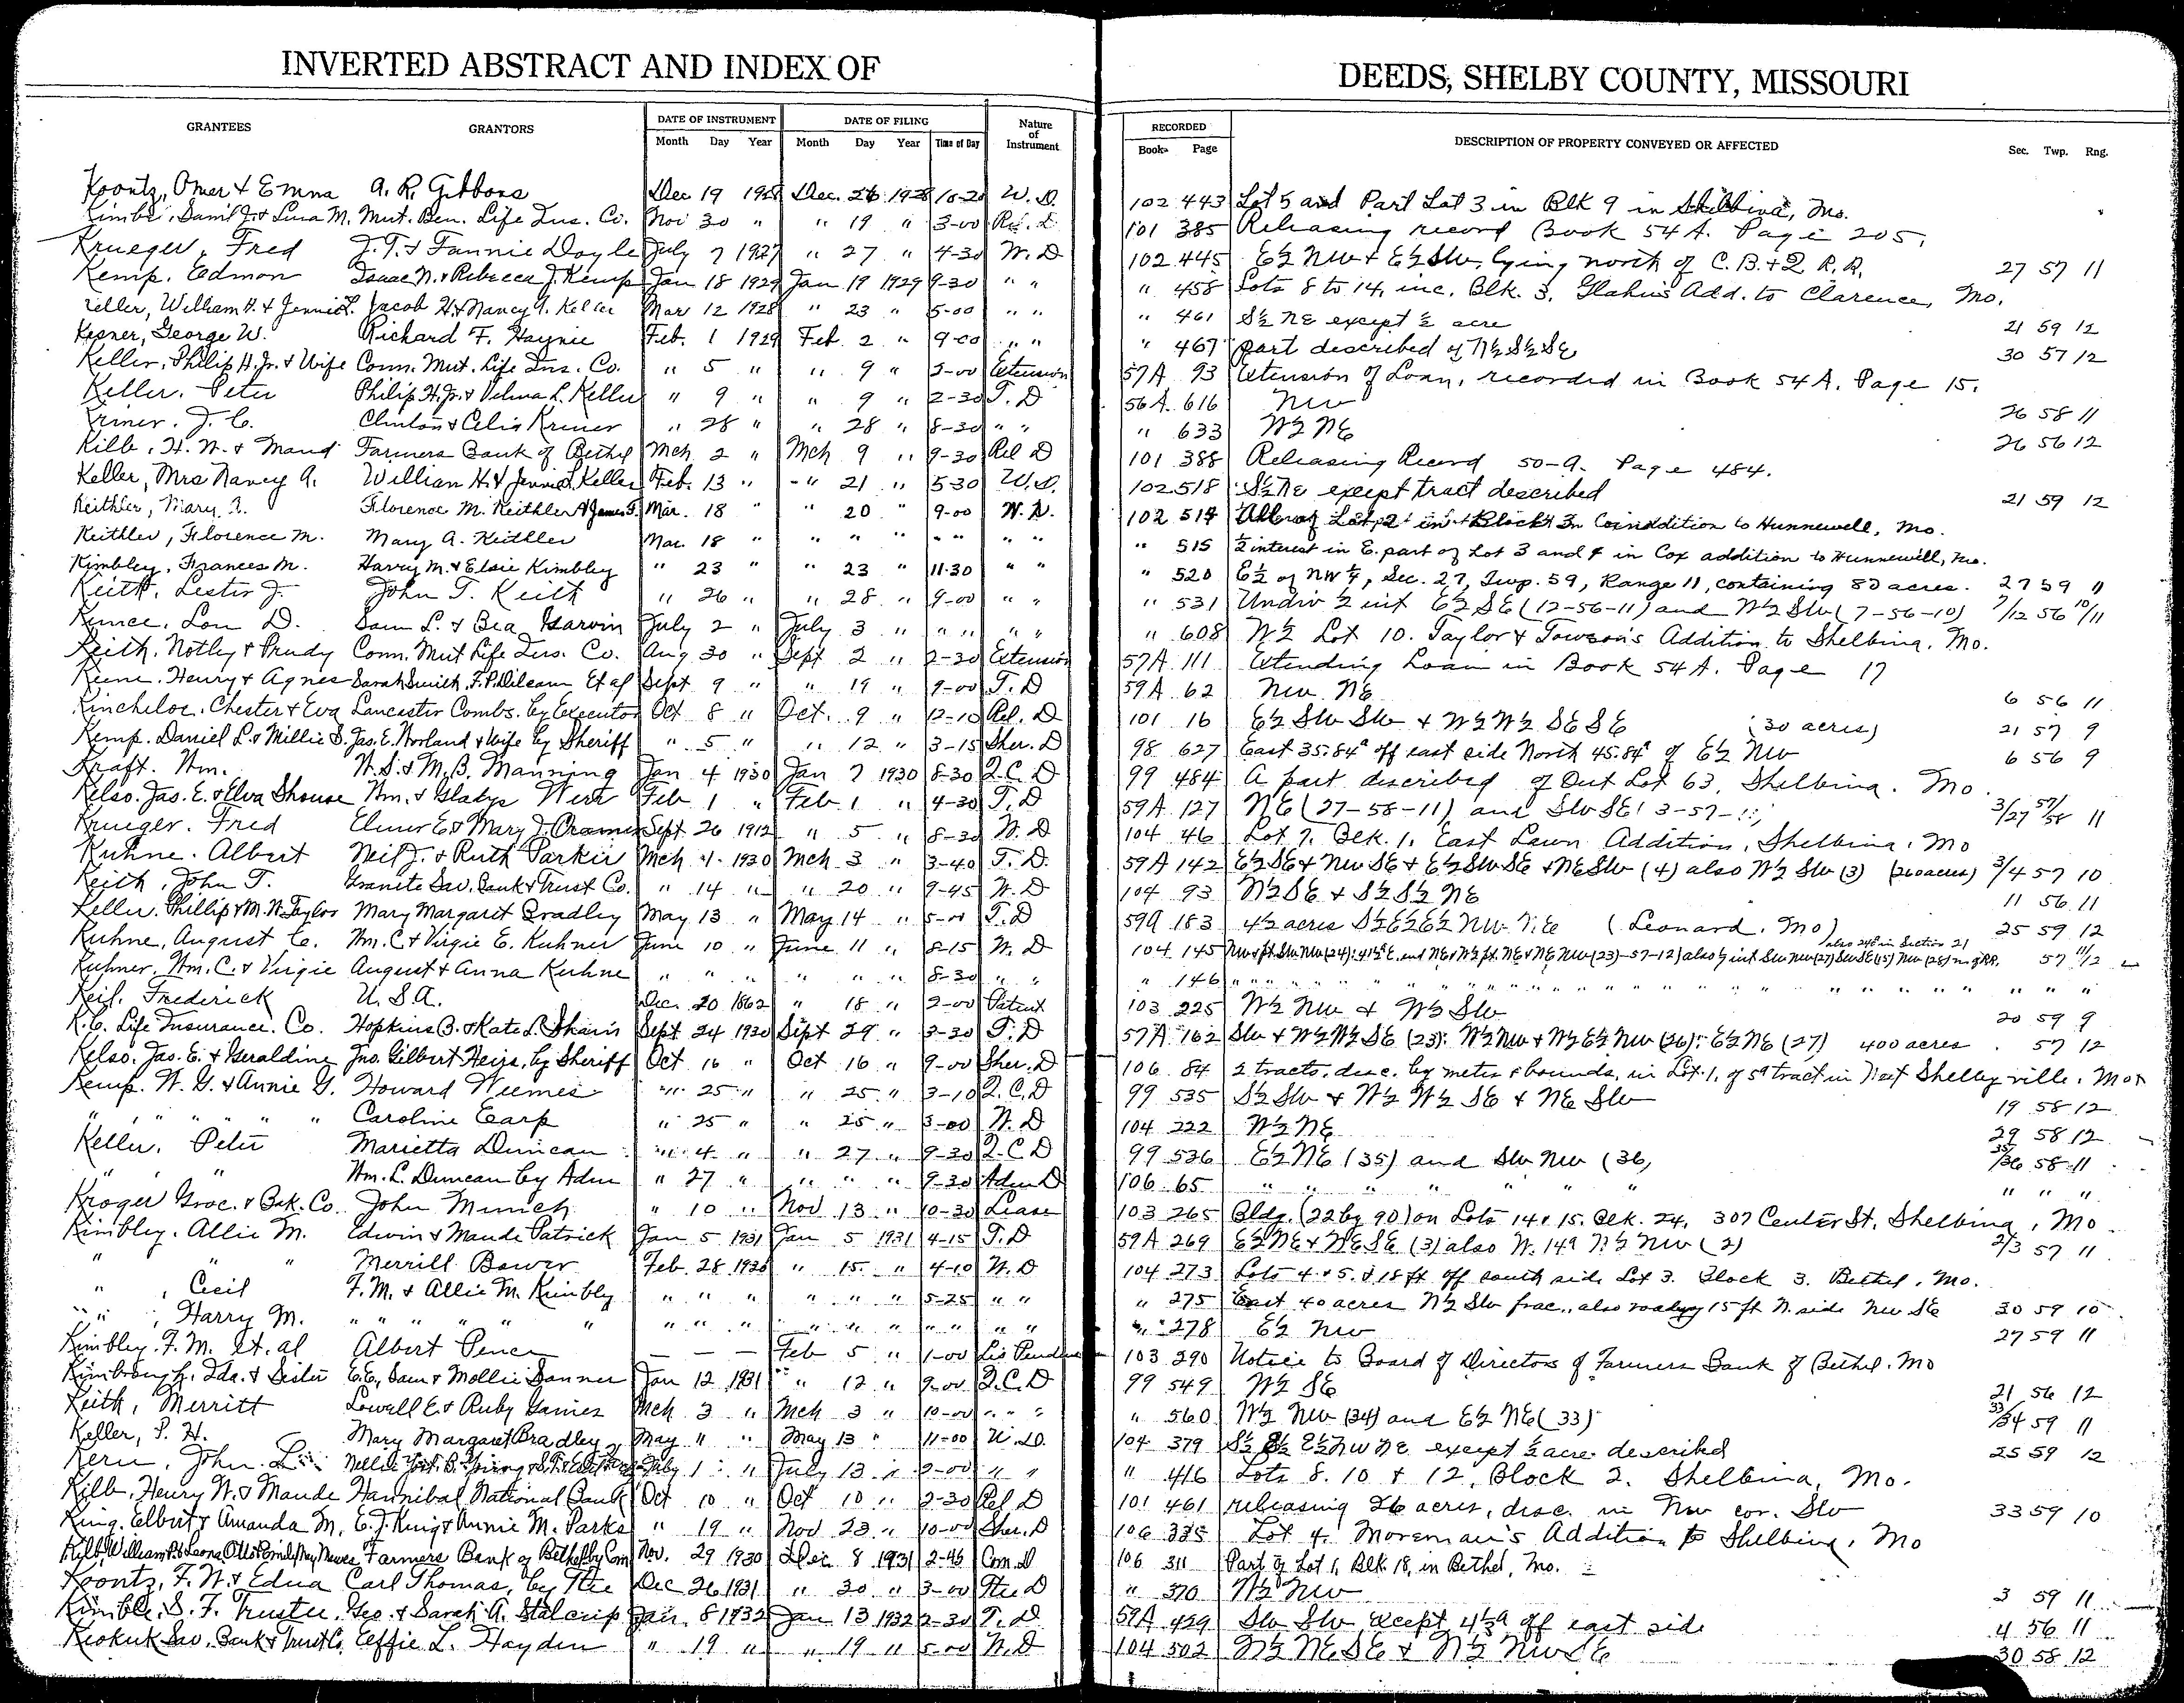 INVERTED ABSTRACT AND INDEX OF DEEDS, SHELBY COUNTY, MISSOURI
GRANTEES GRANTORS DATE OF INSTRUMENT DATE OF FILING Nature of Instrument RECORDED DESCRIPTION OF PROPERTY CONVEYED OR AFFECTED Sec. Twp. Rng.
Month Day Year Month Day Year Time of Day Book Page
Koontz, Omer & Emma A. R. Gibbons Dec 19 1928 Dec. 26 1928 10-20 W. D. 102 443 Lot 5 and Part Lot 3 in Blk 9 in Shelbina, Mo.
Mut. Ben. Life Ins. Co. Nov 30 " " 19 " 3-00 Rel. D 101 385 Releasing record Book 54 A. Page 205.
Krueger, Fred J. T. & Fannie Doyle July 7 1927 " 27 " 4-30 W. D 102 445 E½ NW & E½ SW, lying north of C. B. & Q R. R. 27 57 11
Kemp, Edmon Isaac N. & Rebecca J. Kemp Jan 18 1929 Jan 19 1929 9-30 " " " 458 Lots 8 to 14, inc. Blk. 3, Add. to Clarence, Mo.
Keller, William H. & Jennie L. Jacob H. & Nancy A. Keller Mar 12 1928 " 23 " 5-00 " " " 461 S½ NE except ½ acre 21 59 12
Kesner, George W. Richard F. Haynie Feb. 1 1929 Feb. 2 " 9-00 " " " 467 part described of N½ S½ SE 30 57 12
Keller, Philip H. Jr. & Wife Conn. Mut. Life Ins. Co. " 5 " " 9 " 2-00 Extension 57A 93 Extension of Loan, recorded in Book 54 A. Page 15.
Keller, Peter Philip H. Jr. & Velma L. Keller " 9 " " 9 " 2-30 T. D 56A 616 NW 26 58 11
Kriner, J. C. Clinton & Celia Kriner " 28 " " 28 " 8-30 " " " 633 W½ NE 26 56 12
Kilb, H. W. & Maud Farmers Bank of Bethel Mch 2 " Mch 9 " 9-30 Rel D 101 388 Releasing Record 50-A. Page 484.
Keller, Mrs Nancy A. William H. & Jennie L. Keller Feb. 13 " " 21 " 5-30 W. D. 102 518 S½ NE except tract described 21 59 12
Keithler, Mary A. Florence M. Keithler & James T. Mar. 18 " " 20 " 9-00 W. D. 102 514 Addition to Hunnewell, Mo.
Keithler, Florence M. Mary A. Keithler Mar. 18 " " " " " " " " " 515 ½ interest in E. part of Lot 3 and 4 in Cox addition to Hunnewell, Mo.
Kimbley, Frances M. Harry M. & Elsie Kimbley " 23 " " 23 " 11-30 " " " 520 E½ of NW¼, Sec. 27, Twp. 59, Range 11, containing 80 acres. 27 59 11
Keith, Lester J. John T. Keith " 26 " " 28 " 9-00 " " " 531 Undiv ½ int E½ SE (12-56-11) and W½ SW (7-56-10) 7/12 56 10/11
Kunce, Lon D. Sam L. & Bea Garvin July 2 " July 3 " " " " " " 608 W½ Lot 10. Taylor & Towson's Addition to Shelbina, Mo.
Keith, Notley & Prudy Conn. Mut Life Ins. Co. Aug 30 " Sept 2 " 2-30 Extension 57A 111 Extending Loan in Book 54 A. Page 17
Keene, Henry & Agnes Sarah Smith, Et al Sept 9 " " 19 " 9-00 T. D 59A 62 NW NE 6 56 11
Kincheloe, Chester & Eva Lancaster Combs. by Executor Oct 8 " Oct. 9 " 12-10 Rel. D 101 16 E½ SW SW & W½ W½ SE SE (30 acres) 21 57 9
Kemp, Daniel L. & Millie S. Jas. E. Norland & Wife by Sheriff " 5 " " 12 " 3-15 Sher. D 98 627 East 35.84ª off east side North 45.84ª of E½ NW 6 56 9
Kraft, Wm. W. S. & M. B. Manning Jan 4 1930 Jan 7 1930 8-30 Q. C. D 99 484 A part described of Out Lot 63, Shelbina. Mo.
Kelso, Jas. E. & Elva Shouse Wm. & Gladys Feb 1 " Feb 1 " 4-30 T. D 59A 127 NE (27-58-11) and SW SE (3-57-11) 3/27 57/58 11
Krueger, Fred Elmer E & Mary J. Cramer Sept. 26 1912 " 5 " 8-30 W. D 104 46 Lot 7. Blk. 1. East Lawn Addition, Shelbina, Mo
Kuhne, Albert Neil J. & Ruth Parker Mch 1 1930 Mch 3 " 3-40 T. D 59A 142 E½ SE & NW SE & E½ SW SE & NE SW (4) also W½ SW (3) (260 acres) 3/4 57 10
Keith, John T. Granite Sav. Bank & Trust Co. " 14 " " 20 " 9-45 W. D 104 93 N½ SE & S½ S½ NE 11 56 11
Keller, Phillip & M. W. Taylor Mary Margaret Bradley May 13 " May 14 " 5-00 T. D 59A 183 4½ acres S½ E½ E½ NW NE (Leonard, Mo) 25 59 12
Kuhne, August C. Wm. C & Virgie E. Kuhner June 10 " June 11 " 8-15 W. D 104 145 57 11/12
Kuhner, Wm. C. & Virgie August & Anna Kuhne " " " " " " 8-30 " " " 146 " " " "
Keil, Frederick U. S. A. Dec. 20 1862 " 18 " 2-00 Patent 103 225 W½ NW & W½ SW 20 59 9
K. C. Life Insurance. Co. Hopkins B. & Kate L. Sept 24 1930 Sept 29 " 3-30 T. D 57A 162 SW & W½ W½ SE (23): W½ NW & W½ E½ NW (26): E½ NE (27) 400 acres 57 12
Kelso, Jas. E. & Geraldine Jno. Gilbert Heirs, by Sheriff Oct 16 " Oct 16 " 9-00 Sher. D 106 84 2 tracts, desc. by metes & bounds, in Lot 1, of tract in West Shelbyville, Mo
Kemp, W. G. & Annie G. Howard Weemes " 25 " " 25 " 3-10 Q. C. D 99 535 S½ SW & W½ W½ SE & NE SW 19 58 12
" " " " " Caroline Earp " 25 " " 25 " 3-00 W. D 104 222 W½ NE 29 58 12
Keller, Peter Marietta Duncan " 4 " " 27 " 9-30 Q. C. D 99 536 E½ NE (35) and SW NW (36) 35/36 58 11
" " Wm. L. Duncan by Adm " 27 " " " " 9-30 Adm D 106 65 " " " " " " " " "
Kroger Groc. & Bak. Co. John Munich " 10 " Nov 13 " 10-30 Lease 103 265 Bldg. (22 by 90) on Lots 14 & 15. Blk. 24, 307 Center St. Shelbina, Mo
Kimbley, Allie M. Edwin & Maude Patrick Jan 5 1931 Jan 5 1931 4-15 T. D 59A 269 E½ NE & NE SE (3) also W. 14ª N½ NW (2) 2/3 57 11
" " " Merrill Bower Feb. 28 " 15 " 4-10 W. D 104 273 Lots 4 & 5. & 18 ft off south side Lot 3. Block 3. Bethel, Mo.
" , Cecil F. M. & Allie M. Kimbley " " " " " " 5-25 " " " 275 East 40 acres N½ SW frac., also roadway 15 ft N. side NW SE 30 59 10
" , Harry M. " " " " " " " " " " " " " " " 278 E½ NW 27 59 11
Kimbley, F. M. et. al Albert Pence — — — Feb 5 " 1-00 Lis Pendens 103 290 Notice to Board of Directors of Farmers Bank of Bethel, Mo
Kimbrough, Ida. & Sister E. E., Sam & Mollie Danner Jan 12 1931 " 12 " 9-00 Q. C. D 99 549 W½ SE 21 56 12
Keith, Merritt Lowell E. & Ruby Gaines Mch 3 " Mch 3 " 10-00 " " " " 560 W½ NW (34) and E½ NE (33) 33/34 59 11
Keller, P. H. Mary Margaret Bradley May 11 " May 13 " 11-00 W. D. 104 379 S½ E½ NW NE except ½ acre described 25 59 12
Kern, John L. July 1 " July 13 " 9-00 " " " 416 Lots 8. 10 & 12, Block 2. Shelbina, Mo.
Kilb, Henry W. & Maude Hannibal National Bank Oct 10 " Oct 10 " 2-30 Rel D 101 461 releasing 26 acres, desc. in NW cor. SW 33 59 10
King, Elbert & Amanda M. E. J. King & Annie M. Parks " 19 " Nov 23 " 10-00 Sher. D 106 335 Lot 4. Moreman's Addition to Shelbina, Mo
Kilb, William Farmers Bank of Bethel by Com Nov. 29 1930 Dec 8 1931 2-45 Com. D 106 311 Part of Lot 1, Blk 18, in Bethel, Mo.
Koontz, F. W. & Edna Carl Thomas, by Ttee Dec 26 1931 " 30 " 3-00 Ttee D " 370 W½ NW 3 59 11
Kimble, S. F. Trustee, Geo. & Sarah A. Stalcrip Jan. 8 1932 Jan 13 1932 2-30 T. D. 59A 429 SW SW except 4½ª off east side 4 56 11
Keokuk Sav. Bank & Trust Co. Effie L. Hayden " 19 " " 19 " 5-00 W. D 104 502 N½ NE SE & N½ NW SE 30 58 12